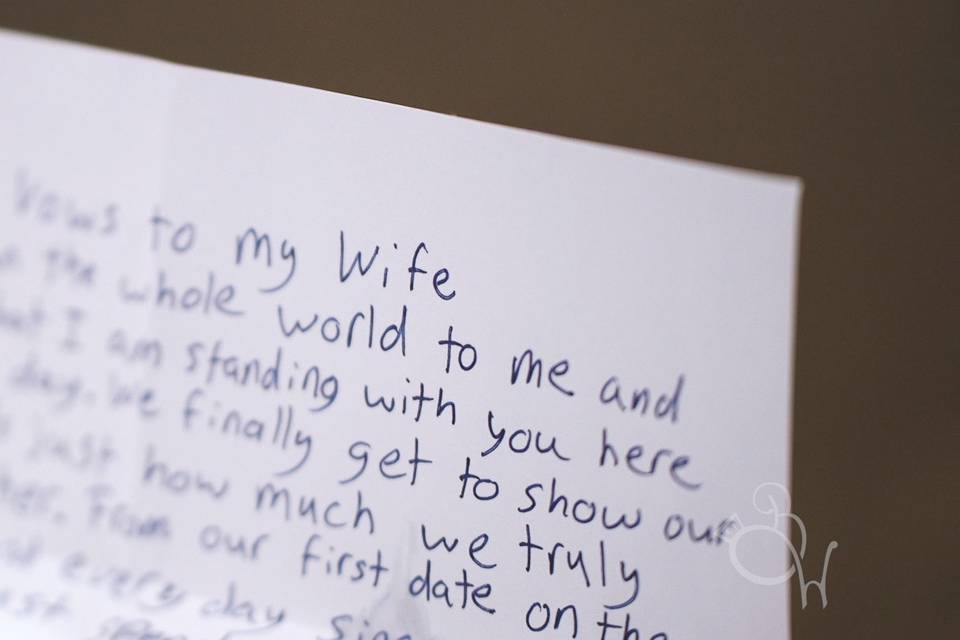 Vows to my Wife
the whole world to me and
I am standing with you here
day. We finally get to show our
just how much we truly
From our first date on the
every day